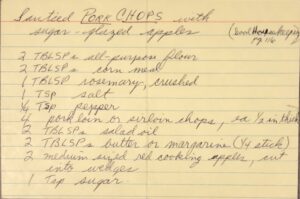 Sautéed PORK CHOPS with
sugar-glazed apples (Good Housekeeping
pg 116
2 TBLSPs all-purpose flour
2 TBLSPs corn meal
1 TBLSP rosemary, crushed
1 TSP salt
¼ TSP pepper
4 pork loin or sirloin chops, ea ½ in thick
2 TBLSPs salad oil
2 TBLSPs butter or margarine (¼ stick)
2 medium sized red cooking apples, cut
into wedges
1 Tsp sugar